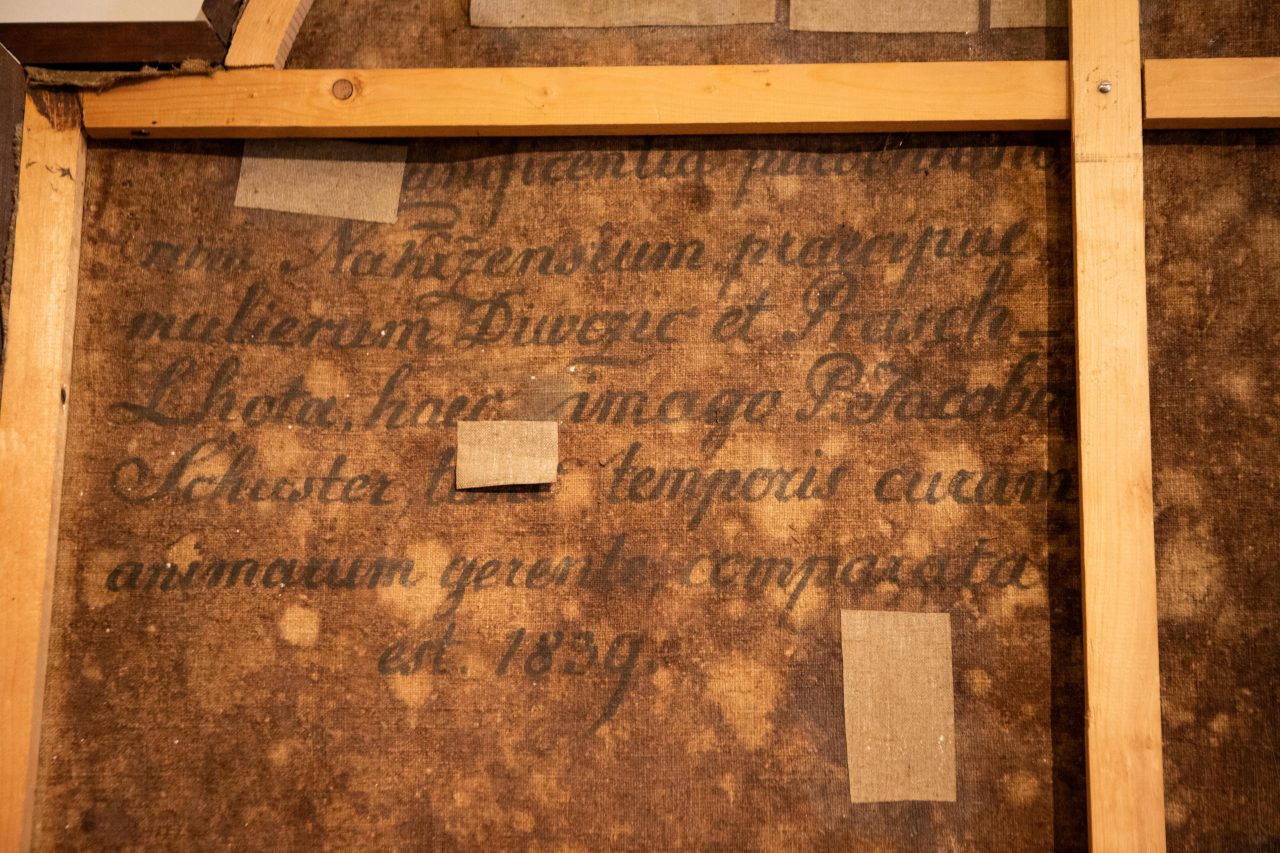 parochiano
rum Nakrzensium praecipue
mulierum Diwczic et Prasch-
Lhota, haec imago P. Jacobo
Schuster, temporis curam
animarum gerente, comparata
est. 1839.